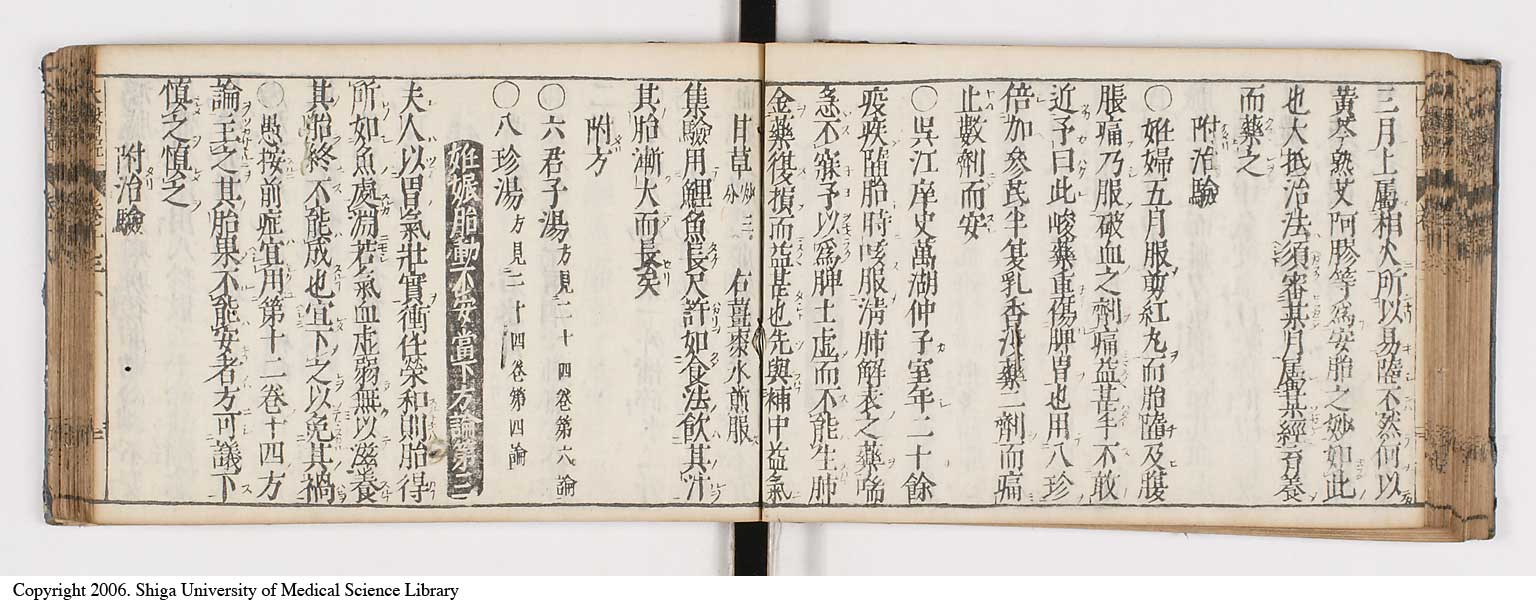 三月上屬相火所以易墮不然何以
黃芩熟艾阿膠等爲安胎之妙如此
也大抵治法須審某月屬某經育養
而藥之
附治驗
○妊婦五月服剪紅丸而胎墮及腹
脹痛乃服破血之劑痛益甚手不敢
近予曰此峻藥重傷脾胃也用八珍
倍加參芪半夏乳香沒藥二劑而痛
止數劑而安
○吳江庠史萬湖仲子室年二十餘
疫疾墮胎時咳服淸肺解表之藥喘
急不寐予以爲脾土虛而不能生肺
金藥復損而益甚也先與補中益氣
甘草炒三分 右薑棗水煎服
集驗用鯉魚長尺許如食法飮其汁
其胎漸大而長矣
附方
○六君子湯方見二十四卷第六論
○八珍湯方見二十四卷第四論
妊娠胎動不安當下方論第三
夫人以胃氣壯實衝任榮和則胎得
所如魚處淵若氣血虛弱無以滋養
其胎終不能成也宜下之以免其禍
○愚按前症宜用第十二卷十四方
論主之其胎果不能安者方可議下
愼之愼之
附治驗
Copyright 2006. Shiga University of Medical Science Library